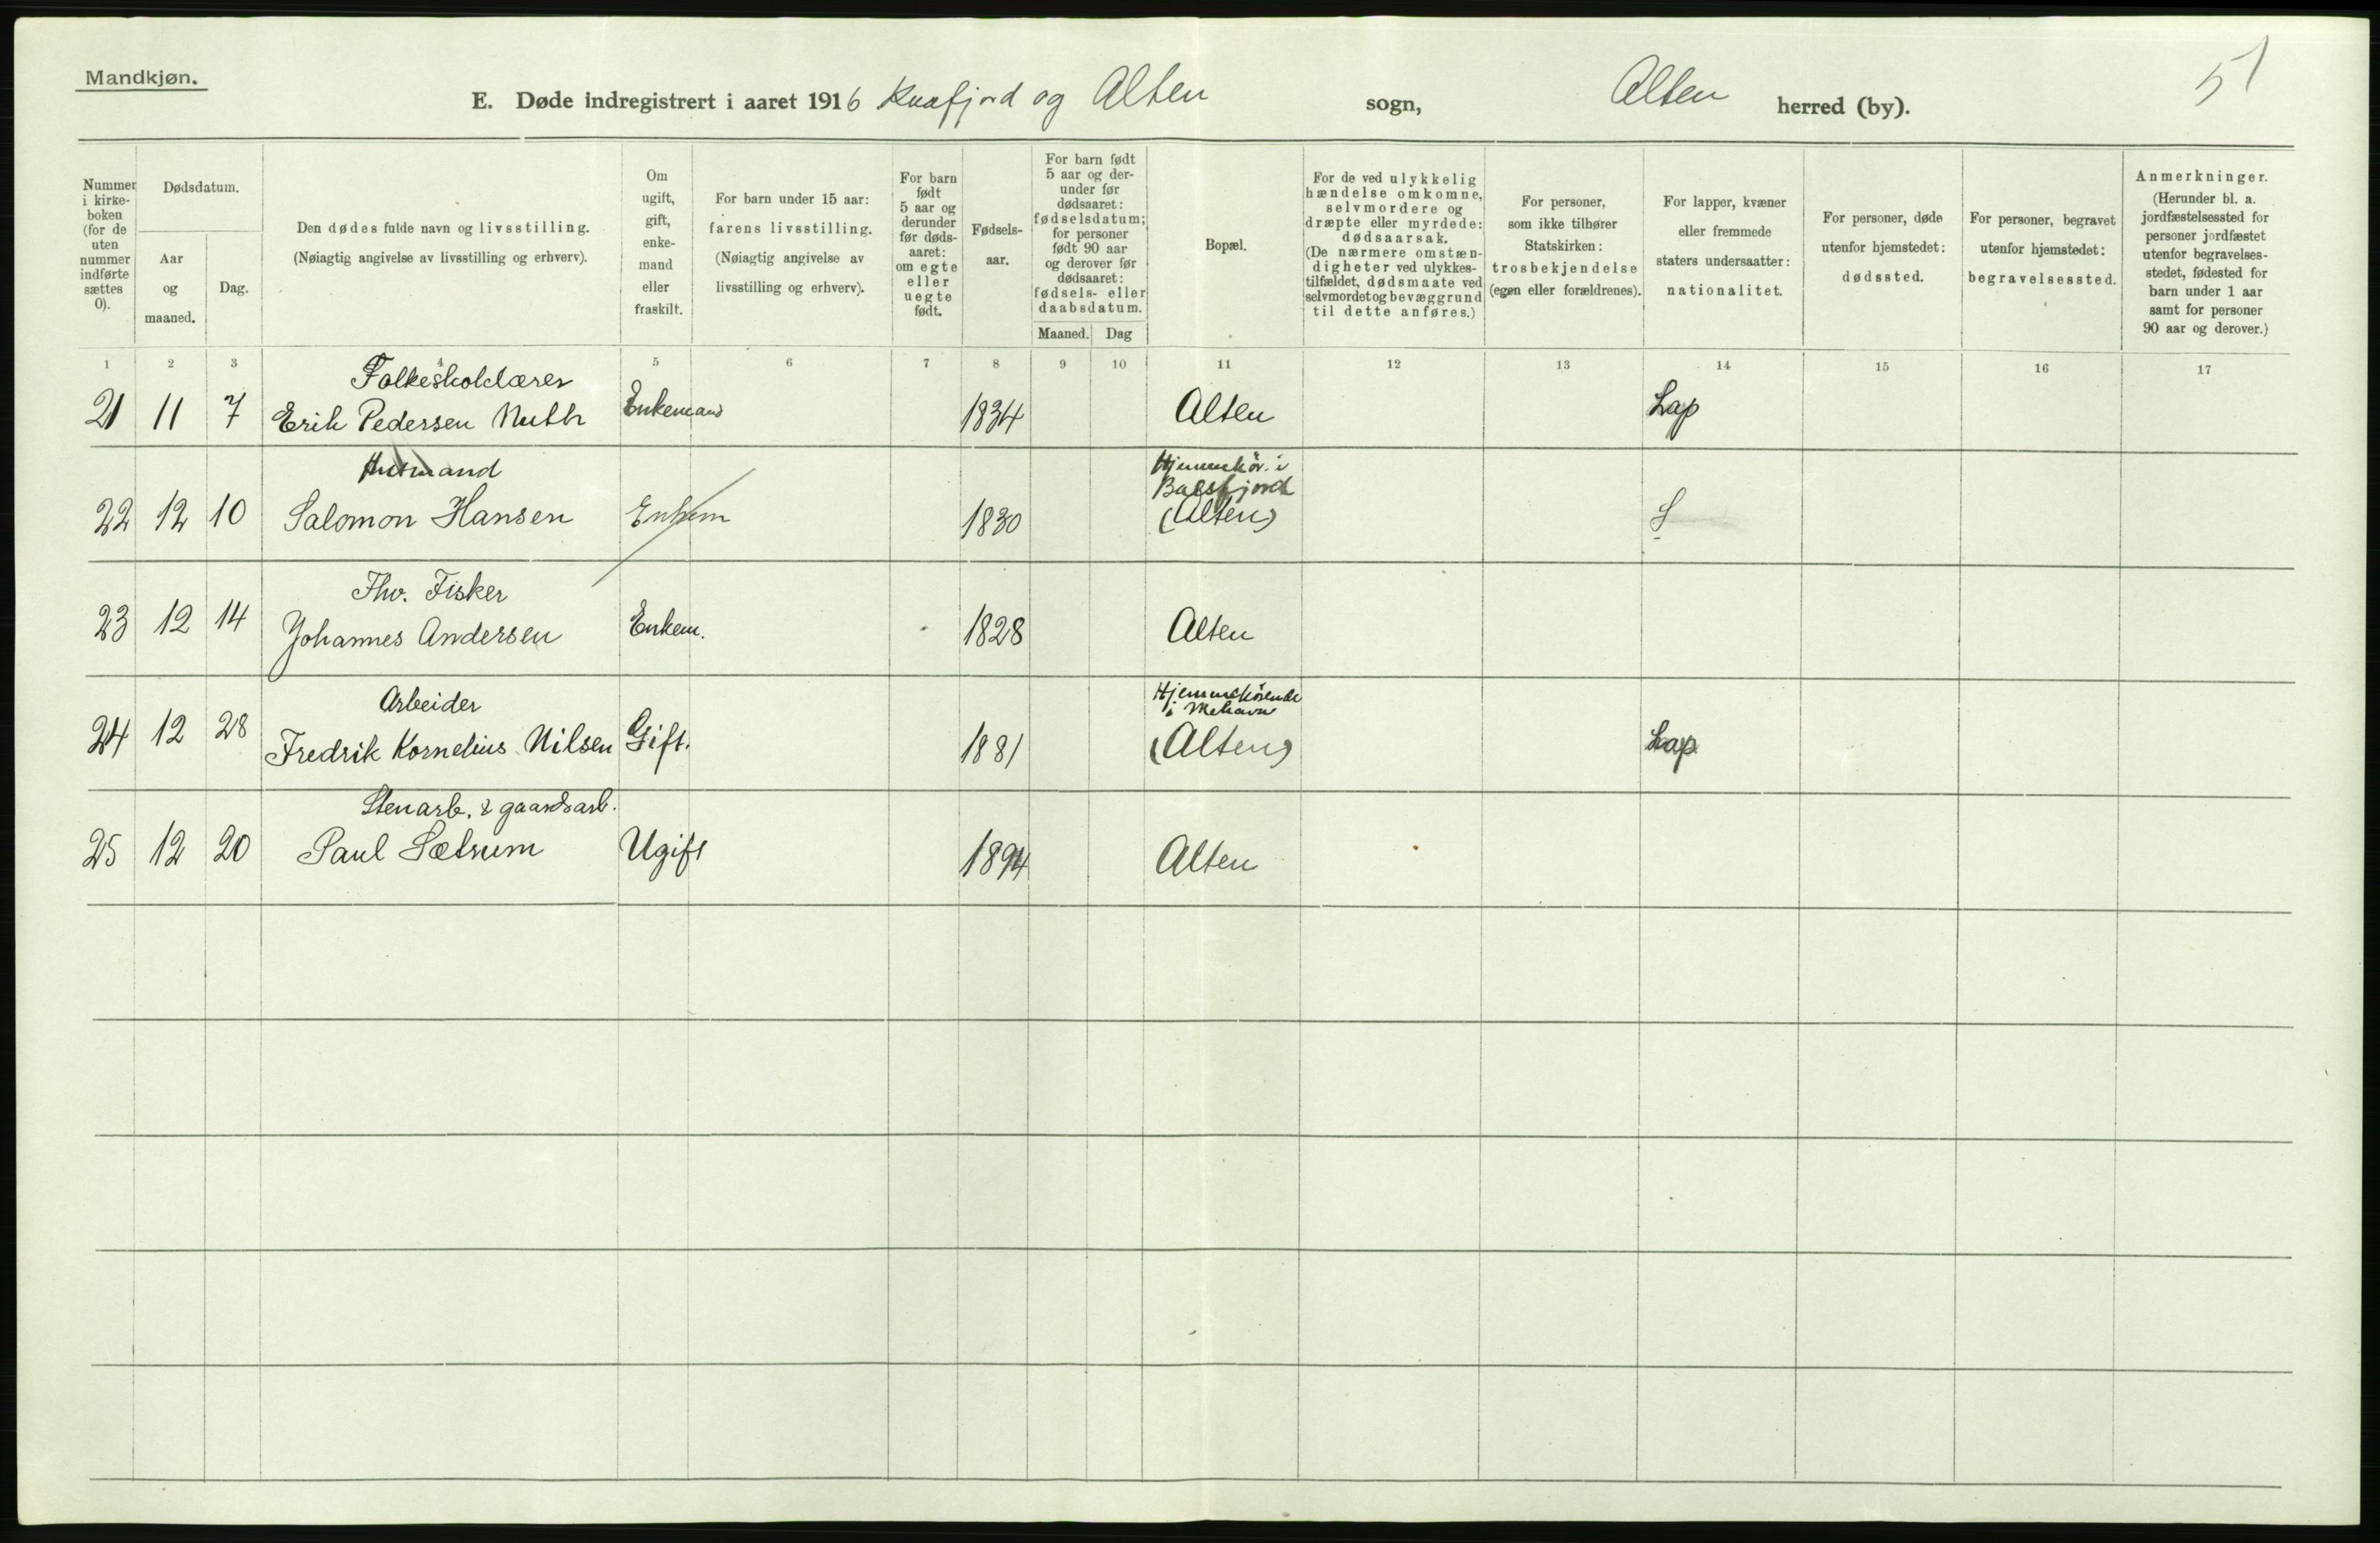 Mandkjøn.
E. Døde indregistrert i aaret 1916 Kvafjord og Alten sogn, Alten herred (by).
51
Nummer i kirke-boken (for de uten nummer indførte sættes 0).
Dødsdatum.
Aar og maaned.
Dag.
Den dødes fulde navn og livsstilling.
(Nøiagtig angivelse av livsstilling og erhverv).
Om ugift, gift, enke-mand eller fraskilt.
For barn under 15 aar: farens livsstilling.
(Nøiagtig angivelse av livsstilling og erhverv).
For barn født 5 aar og derunder før døds-aaret: om egte eller uegte født.
Fødsels-aar.
For barn født 5 aar og der-under før dødsaaret: fødselsdatum; for personer født 90 aar og derover før dødsaaret: fødsels- eller daabsdatum.
Maaned. Dag
Bopæl.
For de ved ulykkelig hændelse omkomne, selvmordere og dræpte eller myrdede: dødsaarsak.
(De nærmere omstæn-digheter ved ulykkes-tilfældet, dødsmaate ved selvmordet og bevæggrund til dette anføres.)
For personer, som ikke tilhører Statskirken: trosbekjendelse (egen eller forældrenes).
For lapper, kvæner eller fremmede staters undersaatter: nationalitet.
For personer, døde utenfor hjemstedet: dødssted.
For personer, begravet utenfor hjemstedet: begravelsessted.
Anmerkninger.
(Herunder bl. a. jordfæstelsessted for personer jordfæstet utenfor begravelses-stedet, fødested for barn under 1 aar samt for personer 90 aar og derover.)
1 2 3 4 5 6 7 8 9 10 11 12 13 14 15 16 17
Folkeskolelærer
21 11 7 Erik Pedersen Muth Enkemand 1834 Alten Lap
Husmand Hjemmehör. i
Balsfjord
22 12 10 Salomon Hansen Enkem 1830 (Alten)
Fhv. Fisker
23 12 14 Johannes Andersen Enkem. 1828 Alten
Arbeider Hjemmehörende
i Mehavn
24 12 28 Fredrik Kornelius Nilsen Gift. 1881 (Alten) Lap
Stenarb. & gaardsarb.
25 12 20 Paul Sætrum Ugift 1894 Alten